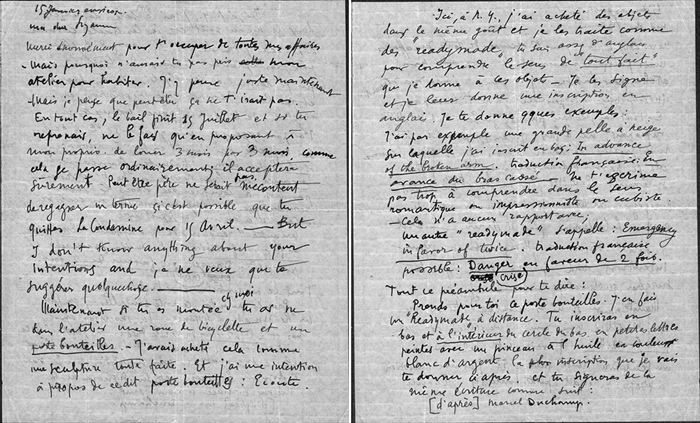 15 janvier environ.
ma chère Suzanne
merci énormément pour t'occuper de toutes mes affaires
- Mais pourquoi n'aurais tu pas pris mon
atelier pour habiter. J'y pense juste maintenant
Mais je pense que peut-être ça ne t'irait pas.
En tout cas, le bail finit 15 Juillet et si tu
reprenais, ne le fais qu'en proposant à
mon proprio de louer 3 mois par 3 mois, comme
cela se passe ordinairement; il acceptera
sûrement. Peut être père ne serait pas mécontent
de regagner un terme si c'est possible que tu
quittes La Condamine pour 15 Avril. — But
I don't know anything about your
intentions and je ne veux que te
suggérer quelquechose. —
Maintenant si tu es montée chez moi tu as vu
dans l'atelier une roue de bicyclette et un
porte bouteilles. — J'avais acheté cela comme
une sculpture toute faite. Et j'ai une intention
à propos de ce dit porte bouteilles : Écoute.
Ici, à N.Y., j'ai acheté des objets
dans le même goût et je les traite comme
des "readymade" tu sais assez d'anglais
pour comprendre le sens de "tout fait"
que je donne à ces objets — Je les signe
et je leur donne une inscription en
anglais. Je te donne qques exemples:
J'ai par exemple une grande pelle à neige
sur laquelle j'ai inscrit en bas: In advance
of the broken arm. traduction française: En
avance du bras cassé — ne t'escrime
pas trop à comprendre dans le sens
romantique ou impressionniste ou cubiste
— Cela n'a aucun rapport avec,
un autre "readymade" s'appelle: Emergency
in favor of twice. traduction française
possible: Danger en faveur de 2 fois.
Crise (Crise)
Tout ce préambule pour te dire:
Prends pour toi ce porte bouteilles. J'en fais
un "Readymade" à distance. Tu inscriras en
bas et à l'intérieur du cercle du bas en petites lettres
peintes avec un pinceau à l'huile en couleur
blanc d'argent la inscription que je vais
te donner ci après. et tu signeras de la
même écriture comme suit:
[d'après] Marcel Duchamp.